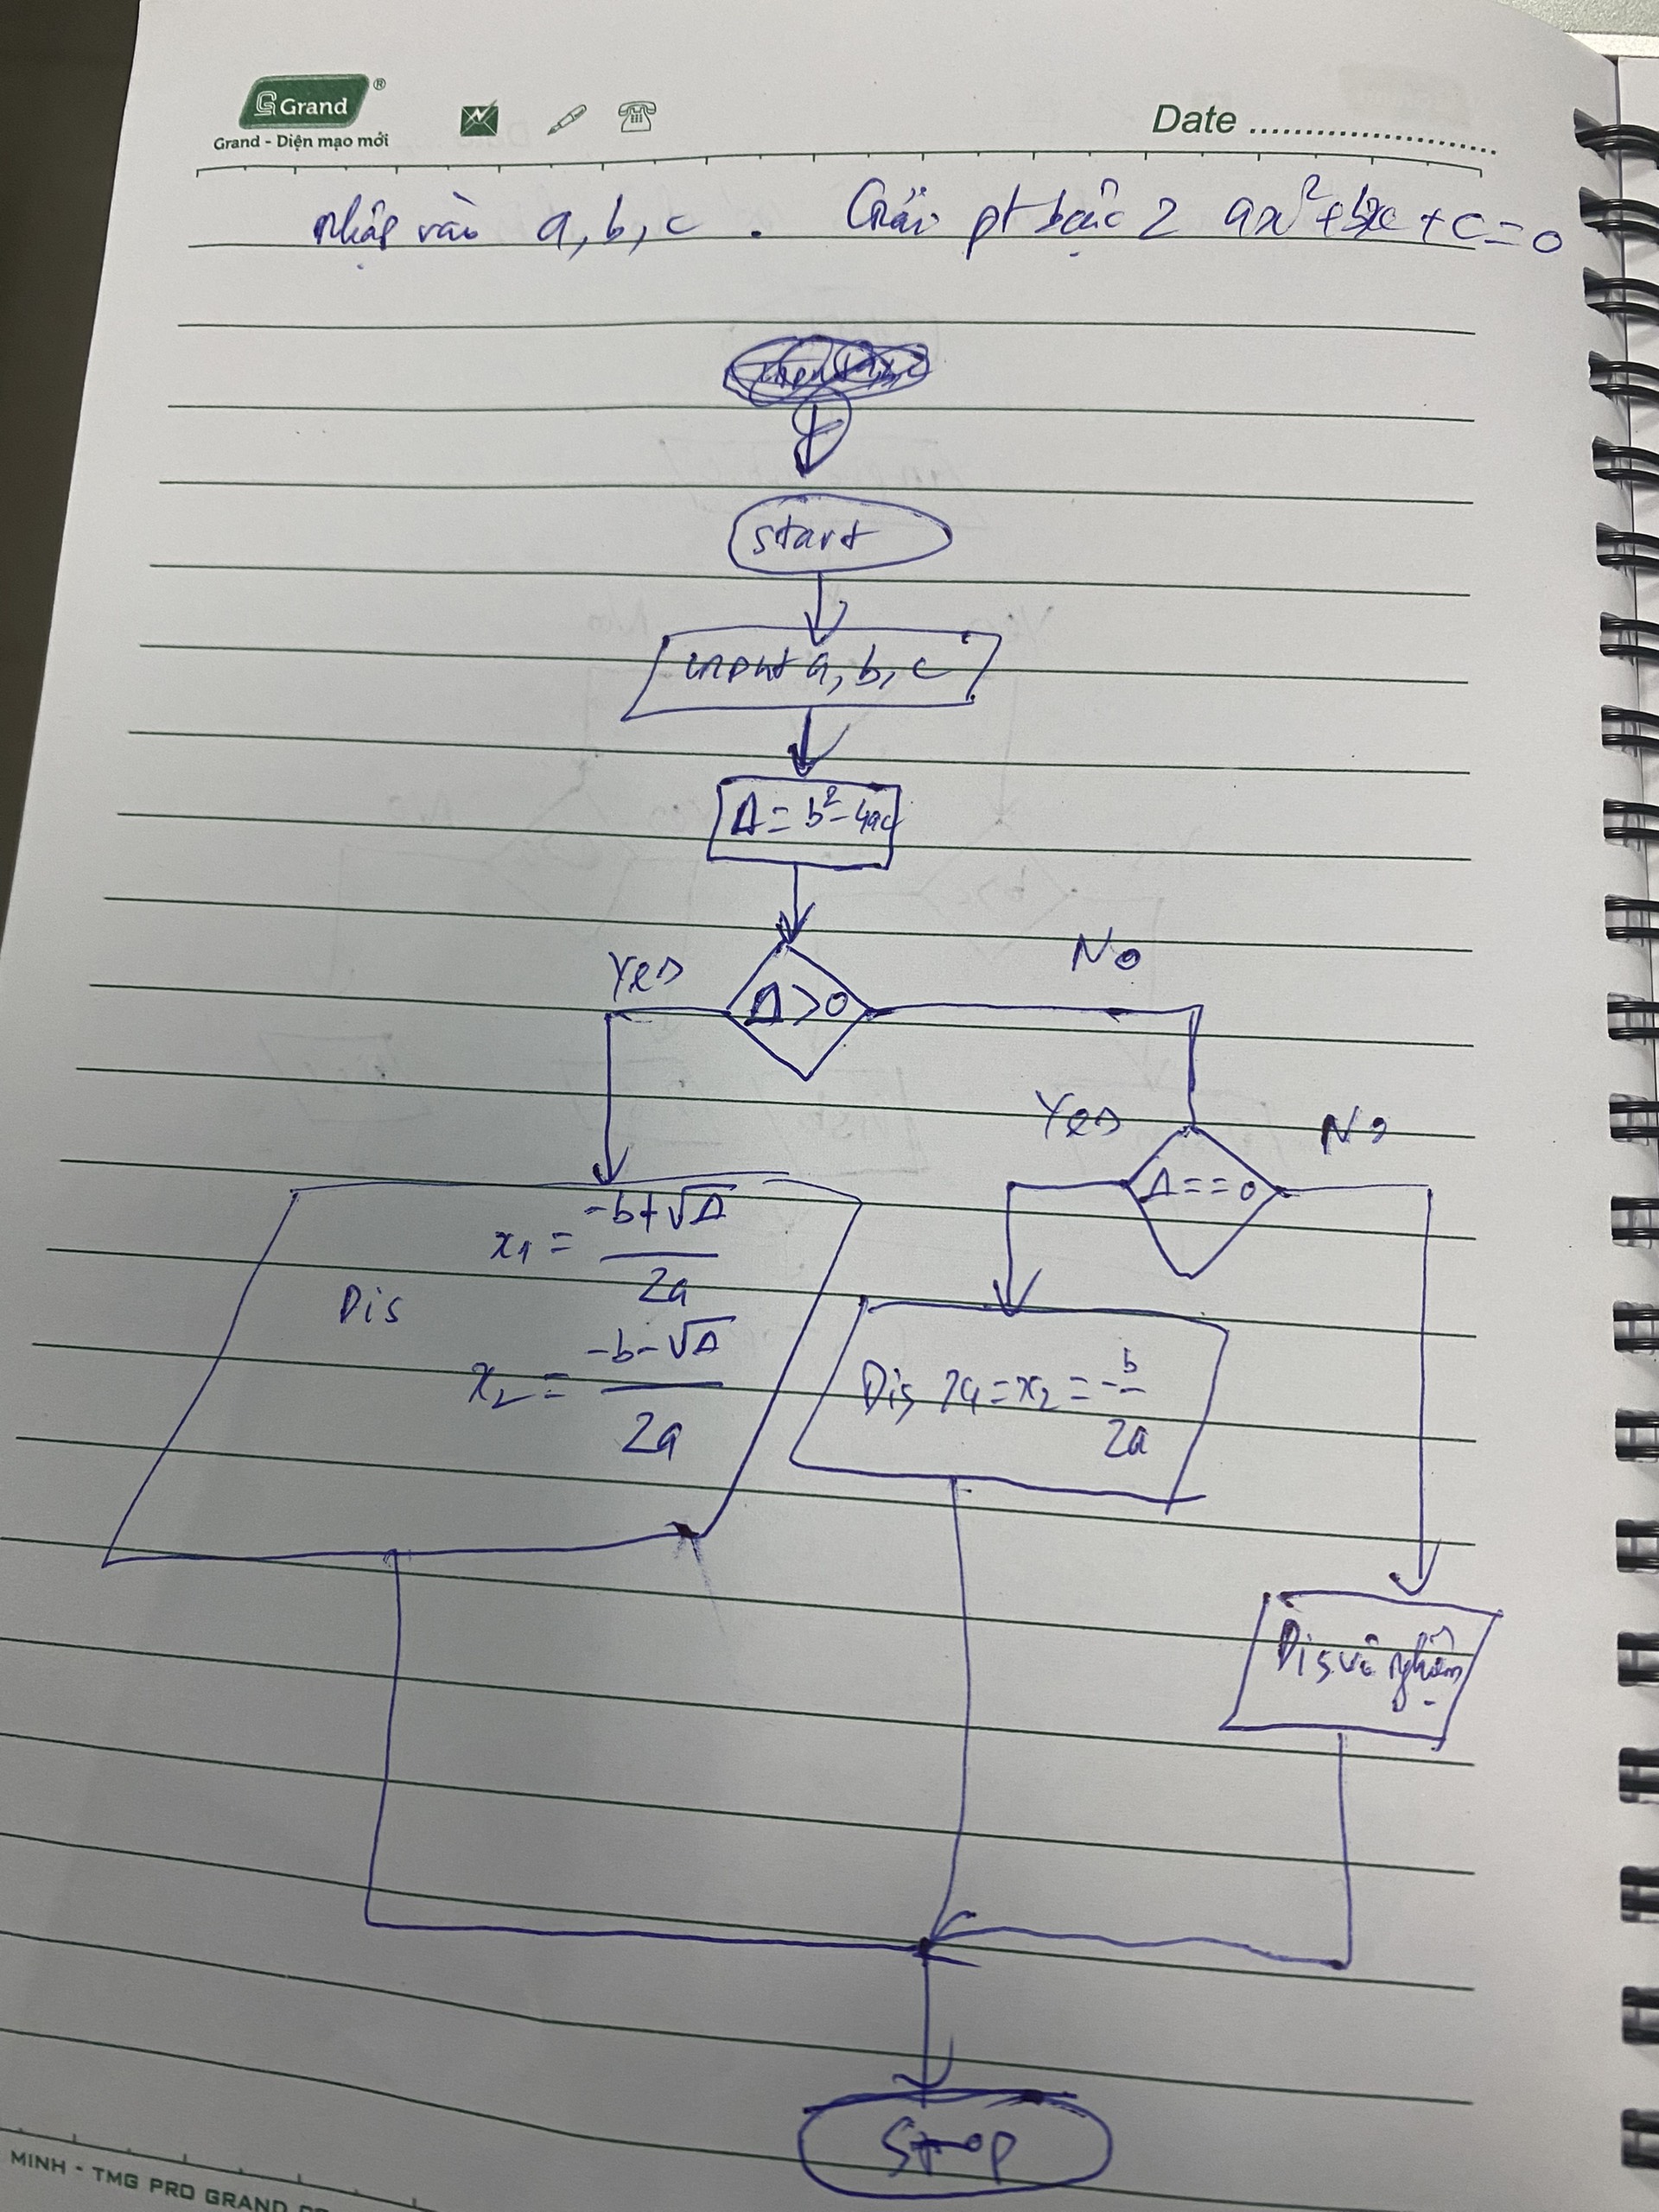 Grand ®
Grand - Diện mạo mới
Date
Nhập vào a, b, c . Giải pt bậc 2 ax²+bx+c=0
start
input a, b, c
Δ = b²-4ac
Yes
Δ>0
No
Yes
Δ==0
No
Dis
x1 = -b+√Δ / 2a
x2 = -b-√Δ / 2a
Dis x1=x2= -b / 2a
Dis vô nghiệm
Stop
MINH - TMG PRO GRAND